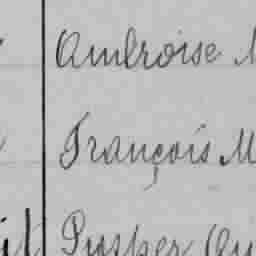 Ambroise
François M
Prosper